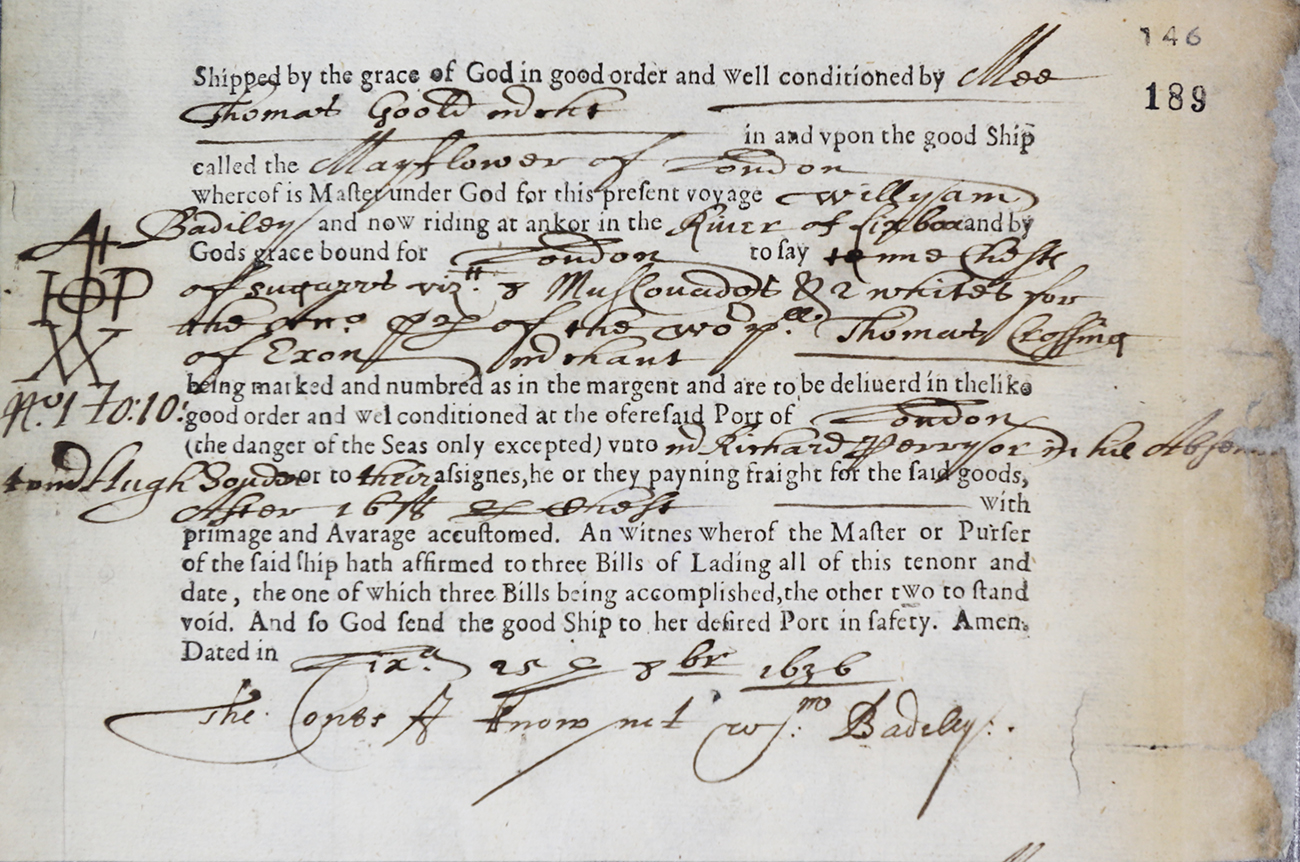 146
189
Shipped by the grace of God in good order and well conditioned by Mee
Thomas Goold mcht
in and vpon the good Ship
called the Mayflower of London
whereof is Master under God for this present voyage willyam
Badiley and now riding at ankor in the River of Lixboa and by
Gods grace bound for London to say tenne Chests
of sugarrs vizt. 8 Muscouados & 2 whites for
the of the worpll. Thomas Crossing
of Exon mchant
being marked and numbred as in the margent and are to be deliuerd in thelike
No. 1 To: 10:
good order and wel conditioned at the oferesaid Port of London
(the danger of the Seas only excepted) vnto mr Richard Perry or in his Absen
Hugh or to their assignes, he or they payning fraight for the said goods,
After 16 Chest with
primage and Avarage accustomed. An witnes wherof the Master or Purser
of the said ship hath affirmed to three Bills of Lading all of this tenonr and
date, the one of which three Bills being accomplished, the other two to stand
void. And so God send the good Ship to her desired Port in safety. Amen.
Dated in Lixa. 25 8br 1636
The Conts I know not Wm: Badiley:.